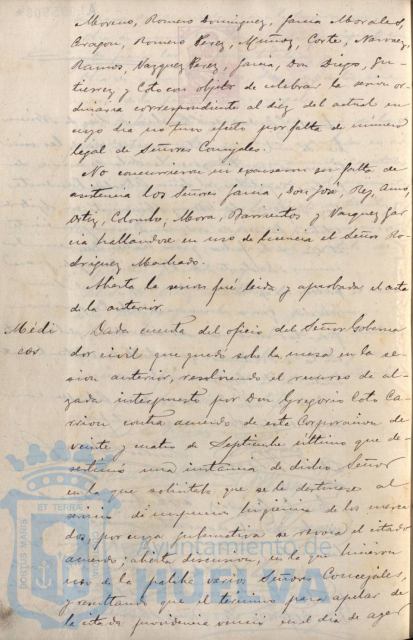 Moreno, Romero Dominguez, Garcia Morales,
Aragon, Romero Perez, Muñoz, Corte, Narvaez
Ramos, Vazquez Perez, Garcia, Don Diego, Gu-
tierrez y Coto con objeto de celebrar la sesion or-
dinaria correspondiente al diez del actual en
cuyo dia no tuvo efecto por falta de número
legal de Señores Concejales.
No concurrieron ni escusaron su falta de
asistencia los Señores Garcia, Don José, Rey,
Ortiz, Colombo, Mora, Barrientos y Vazquez Gar
cia hallandose en uso de licencia el Señor Ro-
driguez Machado.
Abierta la sesion fué leida y aprobada el acta
de la anterior.
Médi
cos
Dada cuenta del oficio del Señor Goberna
dor civil que quedó sobre la mesa en la se-
sion anterior, resolviendo el recurso de al-
zada interpuesto por Don Gregorio Coto Ca-
rrion contra acuerdo de esta Corporacion de
veinte y cuatro de Septiembre último que de-
sestimó una instancia de dicho Señor
en la que solicitaba que se le destinase al
servicio de higiene de los merca
dos, por cuya se revoca el citado
acuerdo; abierta discusion, en la que hicieron
uso de la palabra varios Señores Concejales,
y resultando que el termino para apelar de
la citada providencia vencio en el dia de ayer
PORTUS MARIS
ET TERRAE
Ayuntamiento de
HUELVA